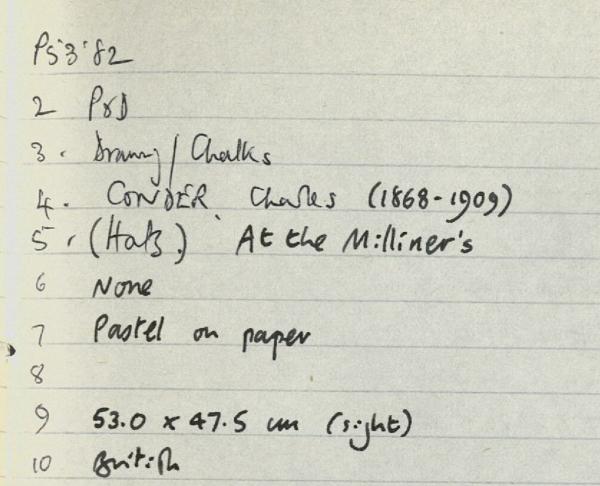 P53'82
2 P&D
3. Drawing / Chalks
4. CONDER Charles (1868-1909)
5. (Hats.) At the Milliner's
6 None
7 Pastel on paper
8
9 53.0 x 47.5 cm (sight)
10 British